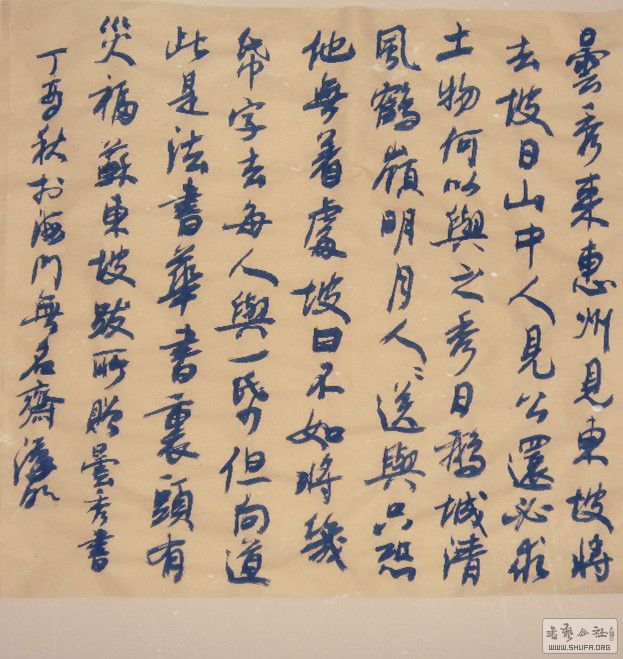 曇秀来惠州見東坡將
去坡曰山中人見公還必求
土物何以與之秀曰鵝城清
風鶴嶺明月人〻送與只恐
他無着處坡曰不如將幾
帋字去每人與一帋但向道
此是法書華書裏頭有
災福蘇東坡跋所贈曇秀書
丁秋於海門無名齋
书艺公社
WWW.SHUFA.ORG